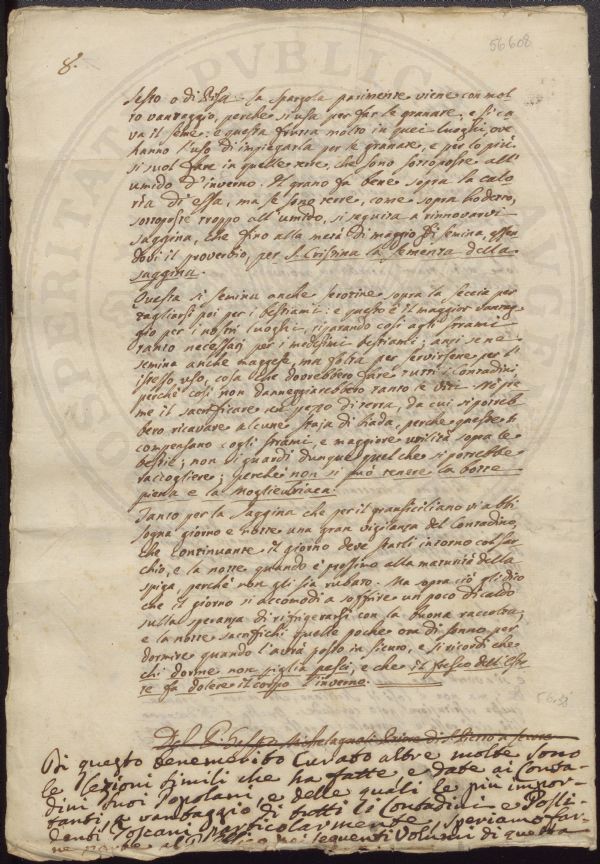 56608
8.
sesto o di Pisa. La spargola parimente viene con mol
to vantaggio, perche si usa per far le granate, e si ca
va il seme: e questa frutta molto in quei luoghi, ove
hanno l'uso di impiegarla per le granate, e per lo più
si suol fare in quelle terre, che sono sottoposte all'
umido d'inverno. Il grano fa bene sopra la calo
ria di essa, ma se sono terre, come sopra ho detto,
sottoposte troppo all'umido, si seguita a rinnovarvi
saggina, che fino alla metà di maggio si semina, essen
dovi il proverbio, per S. Crispina la sementa della
saggina.
Questa si semina anche serotine sopra la seccia per
tagliarsi poi per i bestiami: e questo è il maggior vantag
gio per i nostri luoghi, riparando così agli strami
tanto necessarj per i medesimi bestiami; anzi se ne
semina anche maggese, ma folta per servirsene per l'
istesso uso, cosa che dovrebbero fare tutti i Contadini,
perchè così non danneggiarebbero tanto le viti. Nè pre
me il sacrificare un pezzo di terra, da cui si potreb
bero ricavare alcune staja di biada, perche queste ti
compensano cogli strami, e maggiore utilità sopra le
bestie; non si guardi dunque quel che si potrebbe
raccogliere; perchè non si può tenere la botte
piena e la moglie briaca.
Tanto per la saggina che per il gransiciliano vi abbi
sogna giorno e notte una gran vigilanza del Contadino,
che continuante il giorno deve starli intorno col sar
chio, e la notte quando è prossimo alla maturità della
spiga, perchè non gli sia rubato. Ma sopra ciò gli dico
che il giorno si accomodi a soffrire un poco di caldo
sulla speranza di rifrigerarsi con la buona raccolta,
e la notte sacrifichi quelle poche ore di sonno per
dormire quando l'avrà posto in sicuro, e si ricordi che
chi dorme non piglia pesci, e che il fresco dell'Esta
te fa dolere il corpo l'inverno.
56.58
Del P. Priore di S. Piero a
Di questo benemerito Curato altre molte sono
le Lezioni simili che ha fatte e date ai Conta-
dini suoi Popolani e delle quali le più impor-
tanti a vantaggio di tutti li Contadini e Possi-
denti Toscani particolarmente speriamo far-
ne parte al Pubblico nei seguenti Volumi di questa